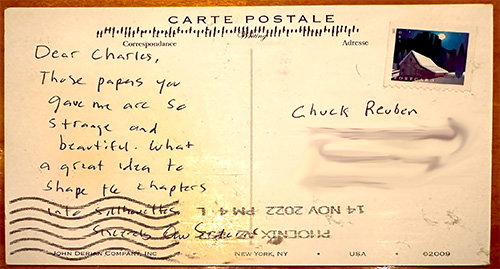 CARTE POSTALE
Correspondance
Adresse
Dear Charles,
Those papers you
gave me are so
strange and
beautiful. What
a great idea to
shape the chapters
into silhouettes
Sincerely
Chuck Reuben
PHOENIX AZ
14 NOV 2022 PM 4 L
JOHN DERIAN COMPANY, INC • NEW YORK, NY • USA • ©2009